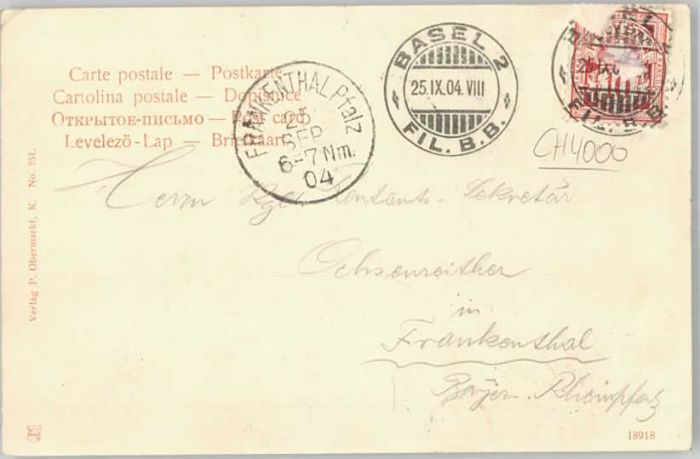 Carte postale — Postkarte
Cartolina postale — Dopisnice
Открытое-письмо — Post card
Levelező-Lap — Briefkaart
FRANKENTHAL Pfalz
25
SEP
6-7 Nm.
04
BASEL 2
25.IX.04.VIII
FIL. B.B.
25.IX
FIL. B.B.
CH4000
Herrn Kgl. Rentamts-Sekretär
Ochsenreither
in
Frankenthal
Bayer. Rheinpfalz
Verlag P. Obermarkt, K. No. 751.
18918